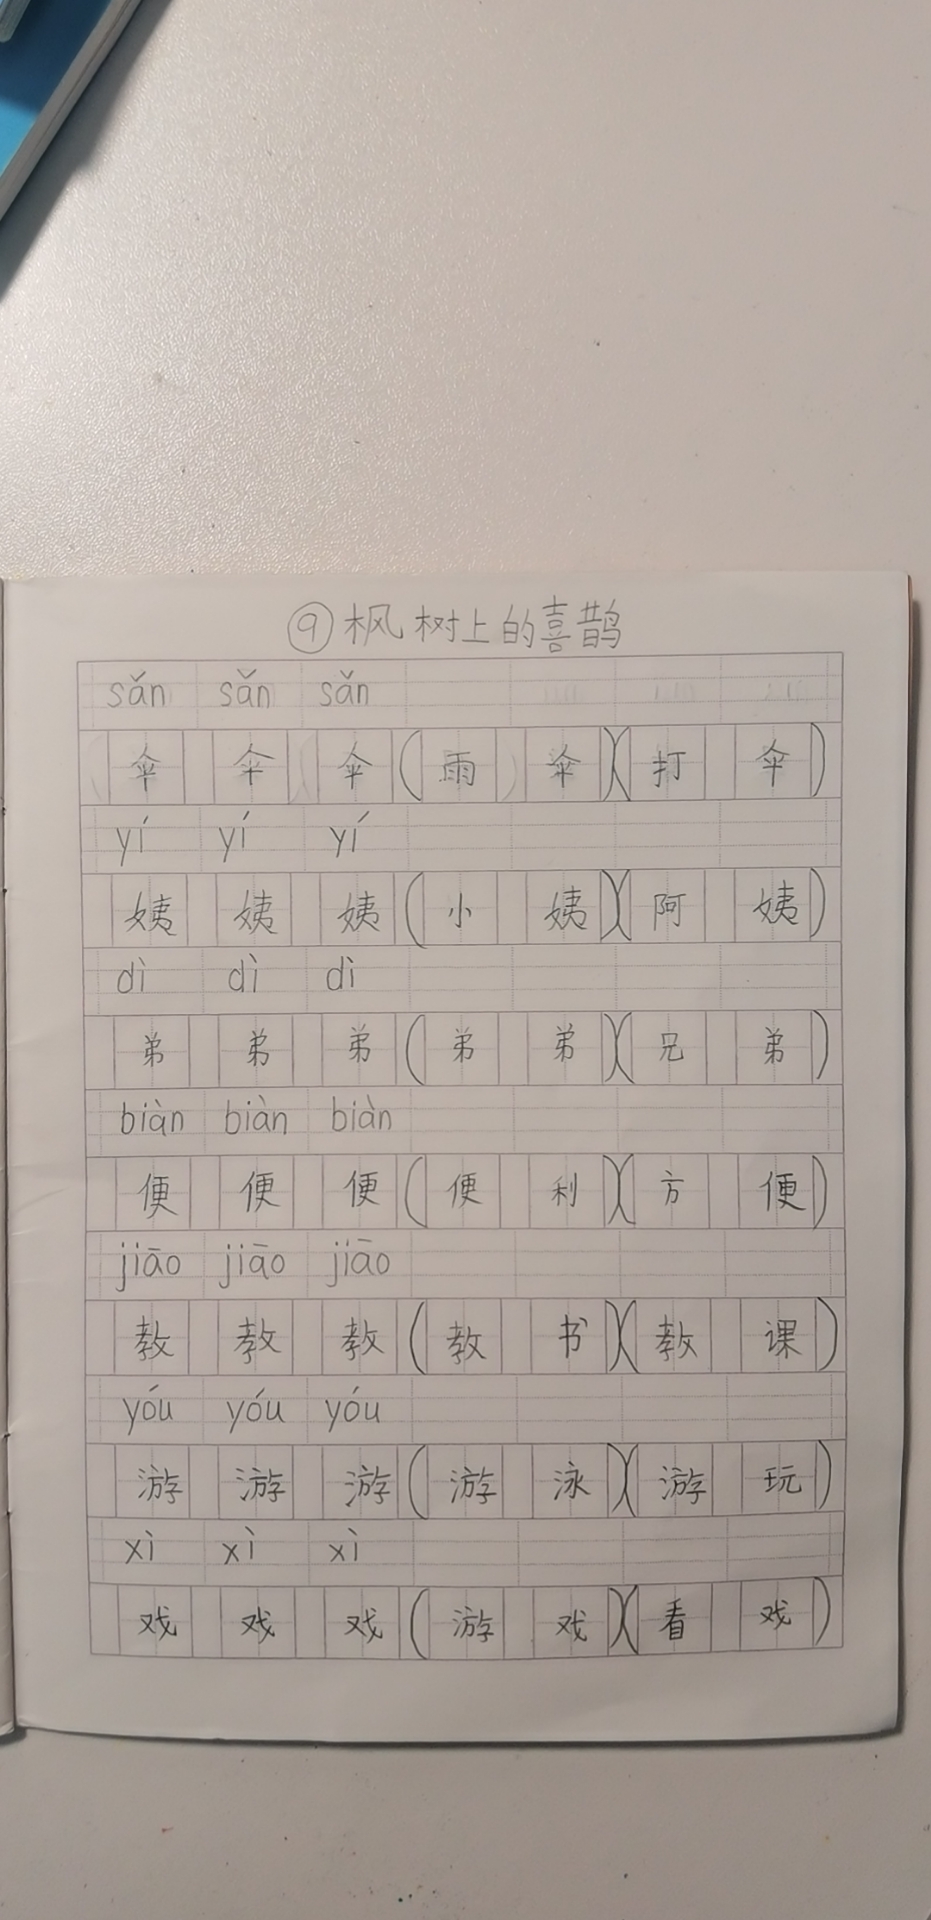 ⑨枫树上的喜鹊
sǎn sǎn sǎn
伞 伞 伞 (雨 伞)(打 伞)
yí yí yí
姨 姨 姨 (小 姨)(阿 姨)
dì dì dì
弟 弟 弟 (弟 弟)(兄 弟)
biàn biàn biàn
便 便 便 (便 利)(方 便)
jiāo jiāo jiāo
教 教 教 (教 书)(教 课)
yóu yóu yóu
游 游 游 (游 泳)(游 玩)
xì xì xì
戏 戏 戏 (游 戏)(看 戏)